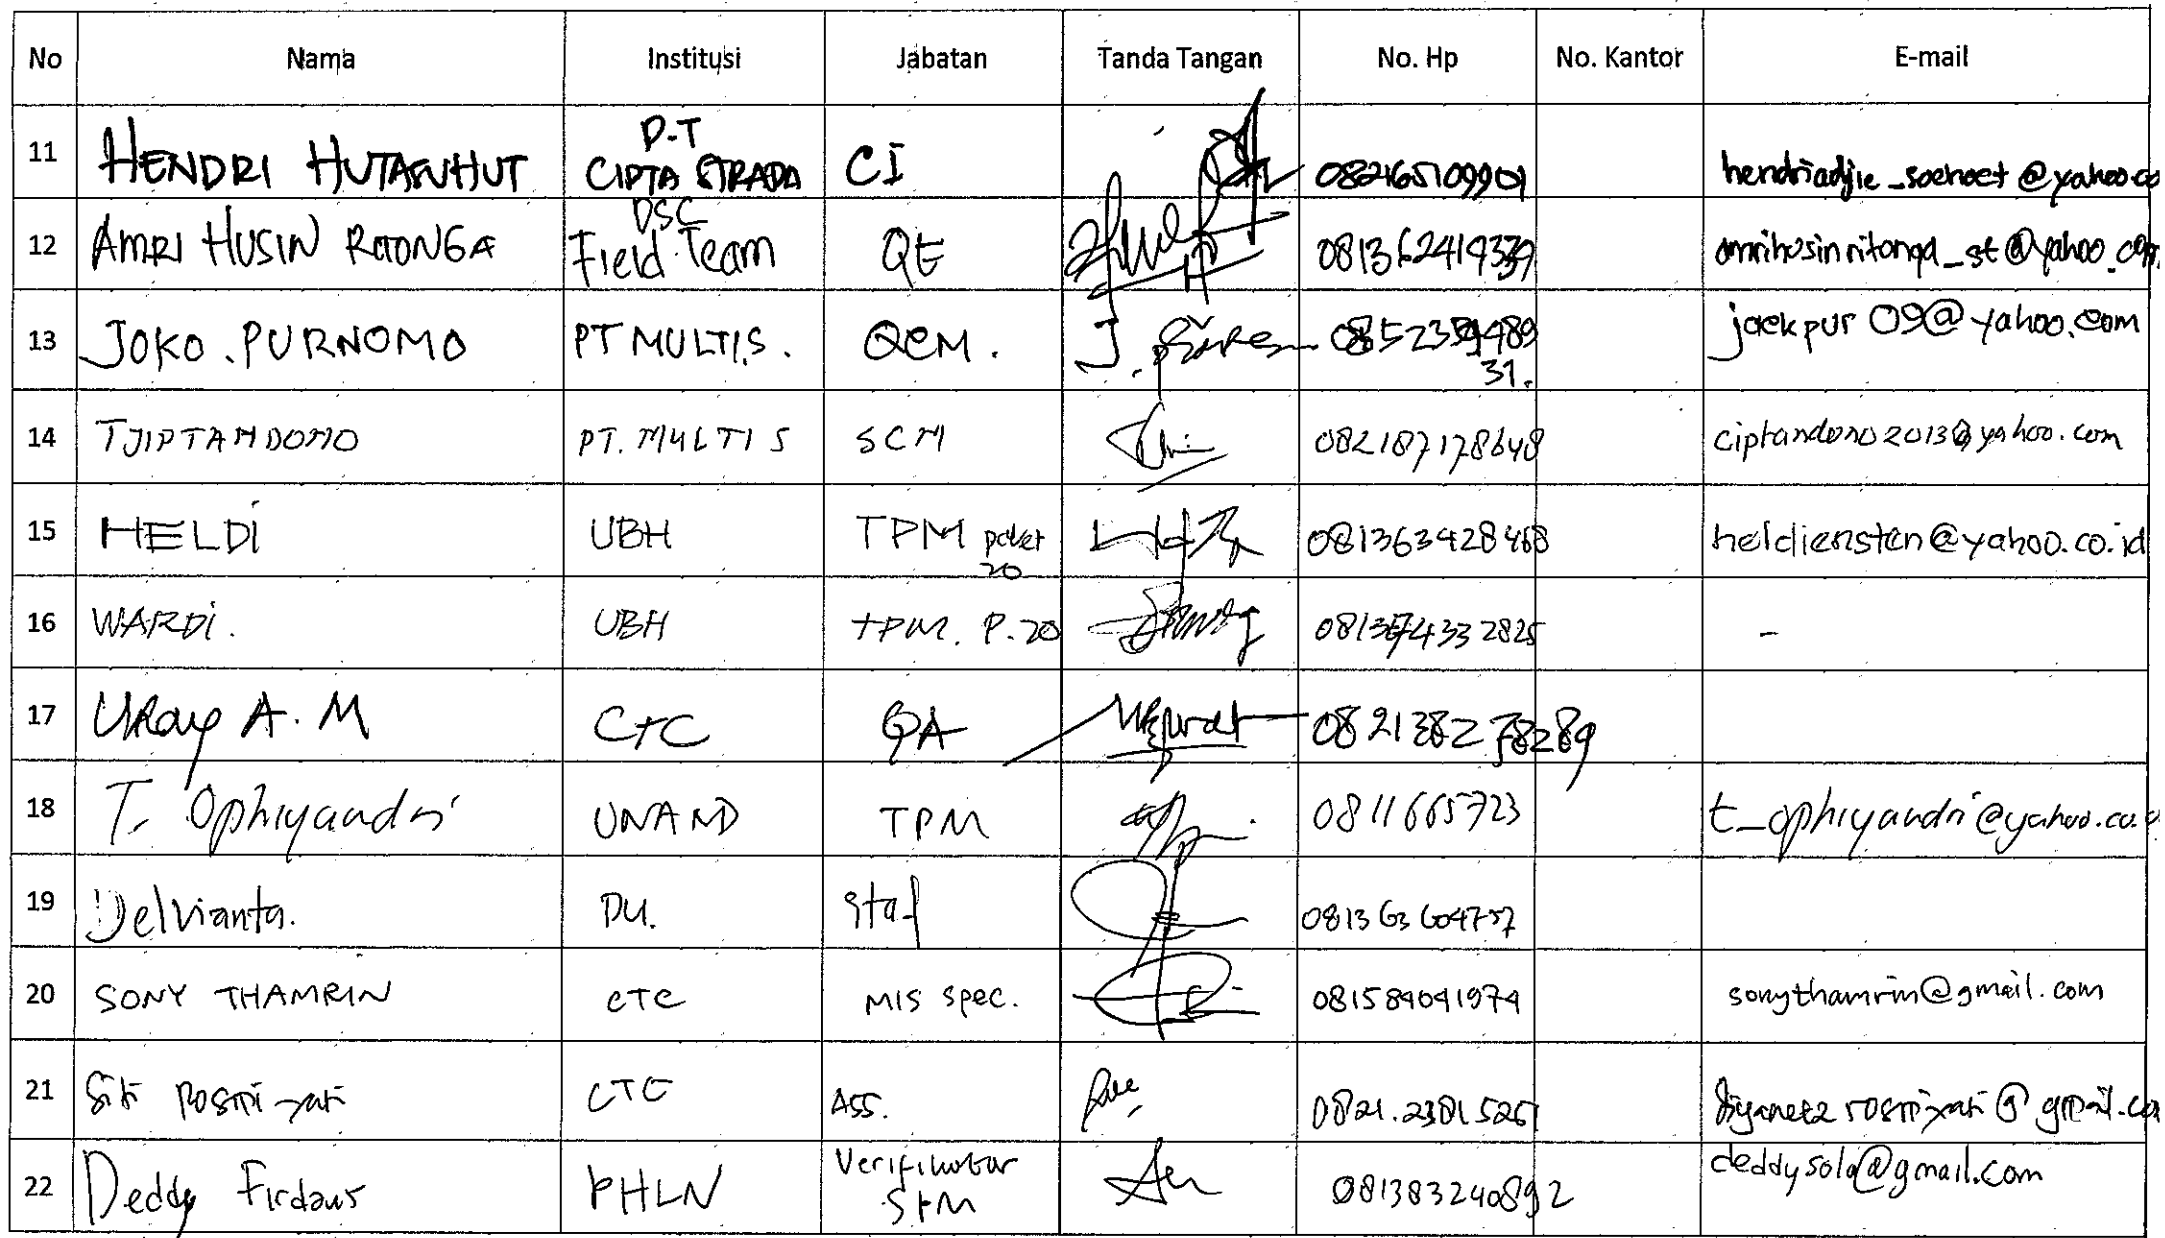 No Nama Institusi Jabatan Tanda Tangan No. Hp No. Kantor E-mail
11 HENDRI HUTASUHUT P.T CIPTA STRADA CI 082165109901 hendriadjie_soehoet@yahoo.co
12 AMRI HUSIN RITONGA DSC Field Team QE amrihusinritonga_st@yahoo.com
13 JOKO.PURNOMO PT MULTI.S. QCM. joekpur09@yahoo.com
14 TJIPTANDONO PT. MULTI S SCM 082187178648 ciptandono2013@yahoo.com
15 HELDI UBH TPM paket 20 081363428468
16 WARDI. UBH TPM. P.20 -
17 Uray A.M CTC QA 082138278289
18 T. Ophiyandri UNAND TPM 0811665723 t_ophiyandri@yahoo.co.
19 Delvianta. PU. Staf
20 SONY THAMRIN CTC MIS spec. 081584041974 sonythamrin@gmail.com
21 Siti Rosmiyati CTC Ass. 0821.23815261
22 Deddy Firdaus PHLN Verifikator SIM 081383240892 deddysolo@gmail.com